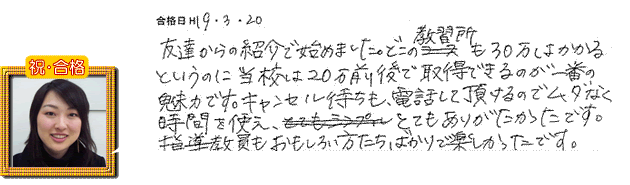 合格日 H19・3・20
祝・合格
教習所
友達からの紹介で始めました。どこのコースも30万はかかる
というのに当校は20万前後で取得できるのが一番の
魅力です。キャンセル待ちも、電話して頂けるのでムダなく
時間を使え、とてもありがたかったです。
指導教員もおもしろい方たちばかりで楽しかったです。